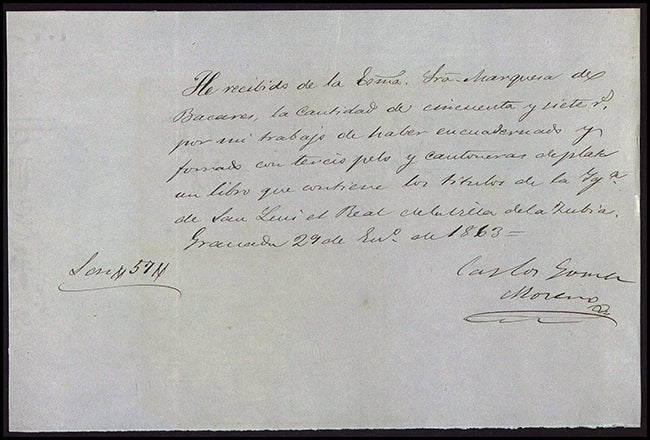 He recibido de la Esma. Sra. Marquesa de
Bacares, la cantidad de cincuenta y siete r.
por mi trabajo de haber encuadernado y
forrado con terciopelo y cantoneras de plata
un libro que contiene los titulos de la Yga.
de San Luis el Real de la villa de la Zubia.
Granada 29 de Eno. de 1863=
Son # 57 #
Carlos Gomez
Moreno